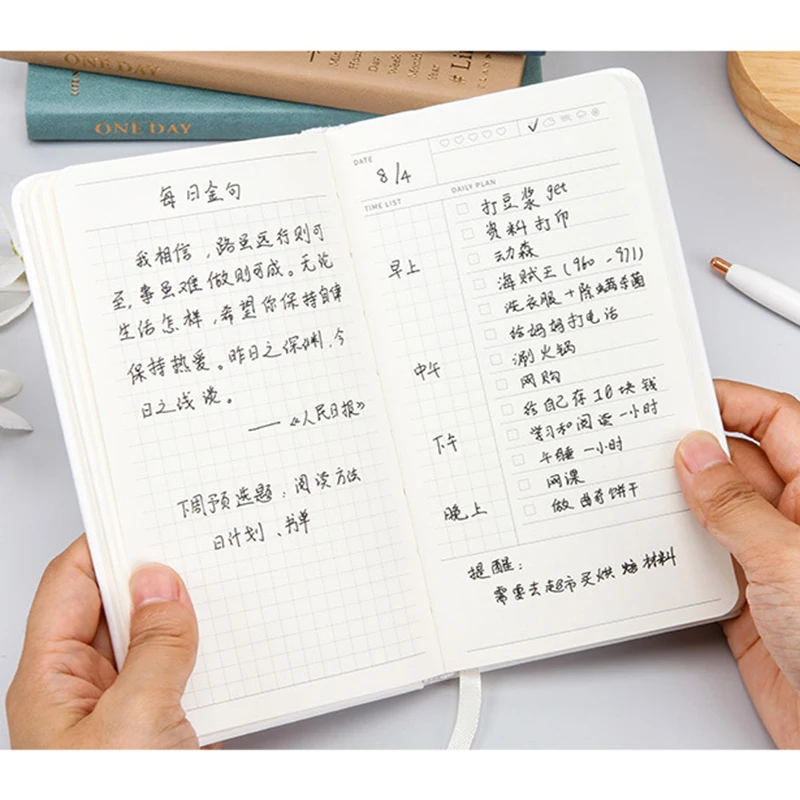 ONE DAY
ONE DAY
每日金句
我相信,路虽远行则可
至,事虽难做则可成。无论
生活怎样,希望你保持自律
保持热爱。昨日之深渊,今
日之浅谈。
——《人民日报》
下周预选题:阅读方法
日计划、书单
DATE
8/4
TIME LIST
DAILY PLAN
早上
中午
下午
晚上
打豆浆 get
资料打印
动森
海贼王(960-971)
洗衣服+除螨杀菌
给妈妈打电话
涮火锅
网购
给自己存10块钱
学习和阅读一小时
午睡一小时
网课
做曲奇饼干
提醒:
需要去超市买烘焙材料